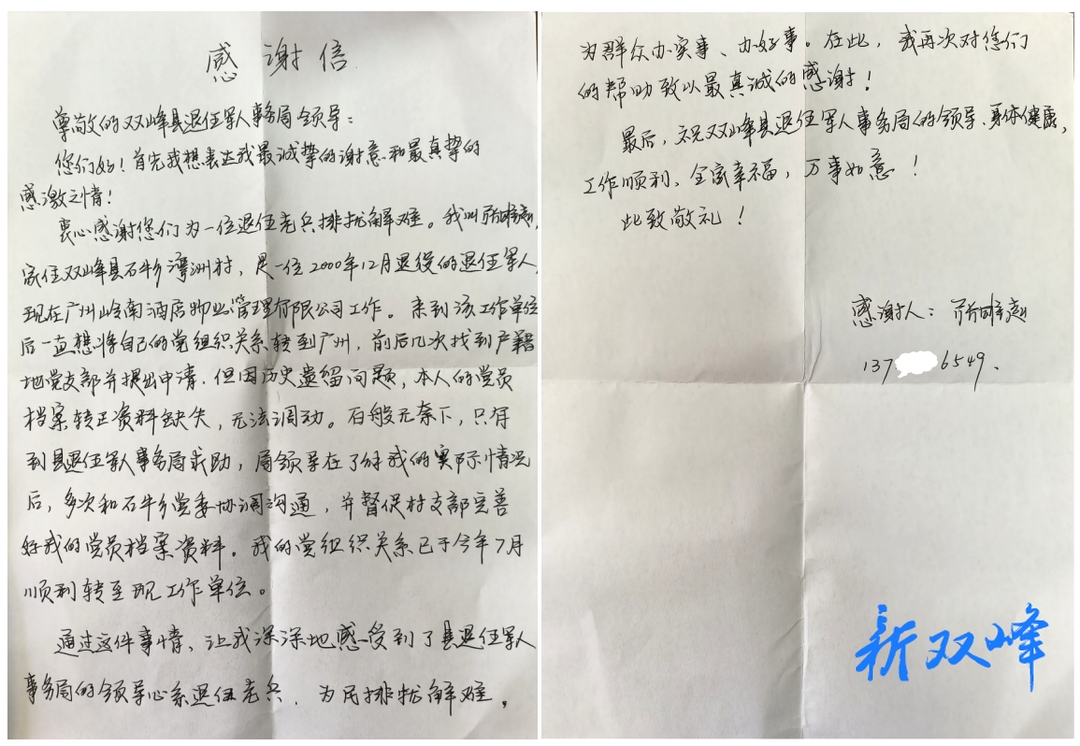 感谢信
尊敬的双峰县退伍军人事务局领导：
您们好！首先我想表达我最诚挚的谢意和最真挚的
感激之情！
衷心感谢您们为一位退伍老兵排扰解难。我叫
家住双峰县石牛乡湾洲村，是一位2000年12月退役的退伍军人，
现在广州岭南酒店物业管理有限公司工作。来到该工作单位
后一直想将自己的党组织关系转到广州，前后几次找到户籍
地党支部并提出申请，但因历史遗留问题，本人的党员
档案转正资料缺失，无法调动。百般无奈下，只得
到县退伍军人事务局求助，局领导在了解我的实际情况
后，多次和石牛乡党委协调沟通，并督促村支部完善
好我的党员档案资料。我的党组织关系已于今年7月
顺利转至现工作单位。
通过这件事情，让我深深地感受到了县退伍军人
事务局的领导心系退伍老兵、为民排扰解难，
为群众办实事、办好事。在此，我再次对您们
的帮助致以最真诚的感谢！
最后，祝双峰县退伍军人事务局的领导、身体健康，
工作顺利、全家幸福，万事如意！
此致敬礼！
感谢人：
137 6549.
新双峰